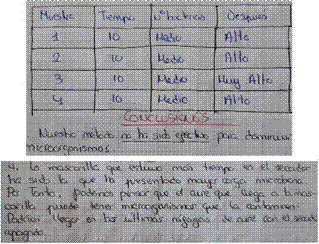 Muestra Tiempo Nº bacterias Después
1 10 Medio Alto
2 10 Medio Alto
3 10 Medio Muy Alto
4 10 Medio Alto
CONCLUSIONES
Nuestro método no ha sido efectivo para disminuir
microorganismos.
4. La mascarilla que estuvo más tiempo en el secador
ha sido la que ha presentado mayor carga microbiana.
Por tanto, podemos pensar que el aire que llega a la mas-
carilla puede tener microorganismos que la contaminen.
Podrían llegar en las últimas ráfagas de aire con el secador
apagado.